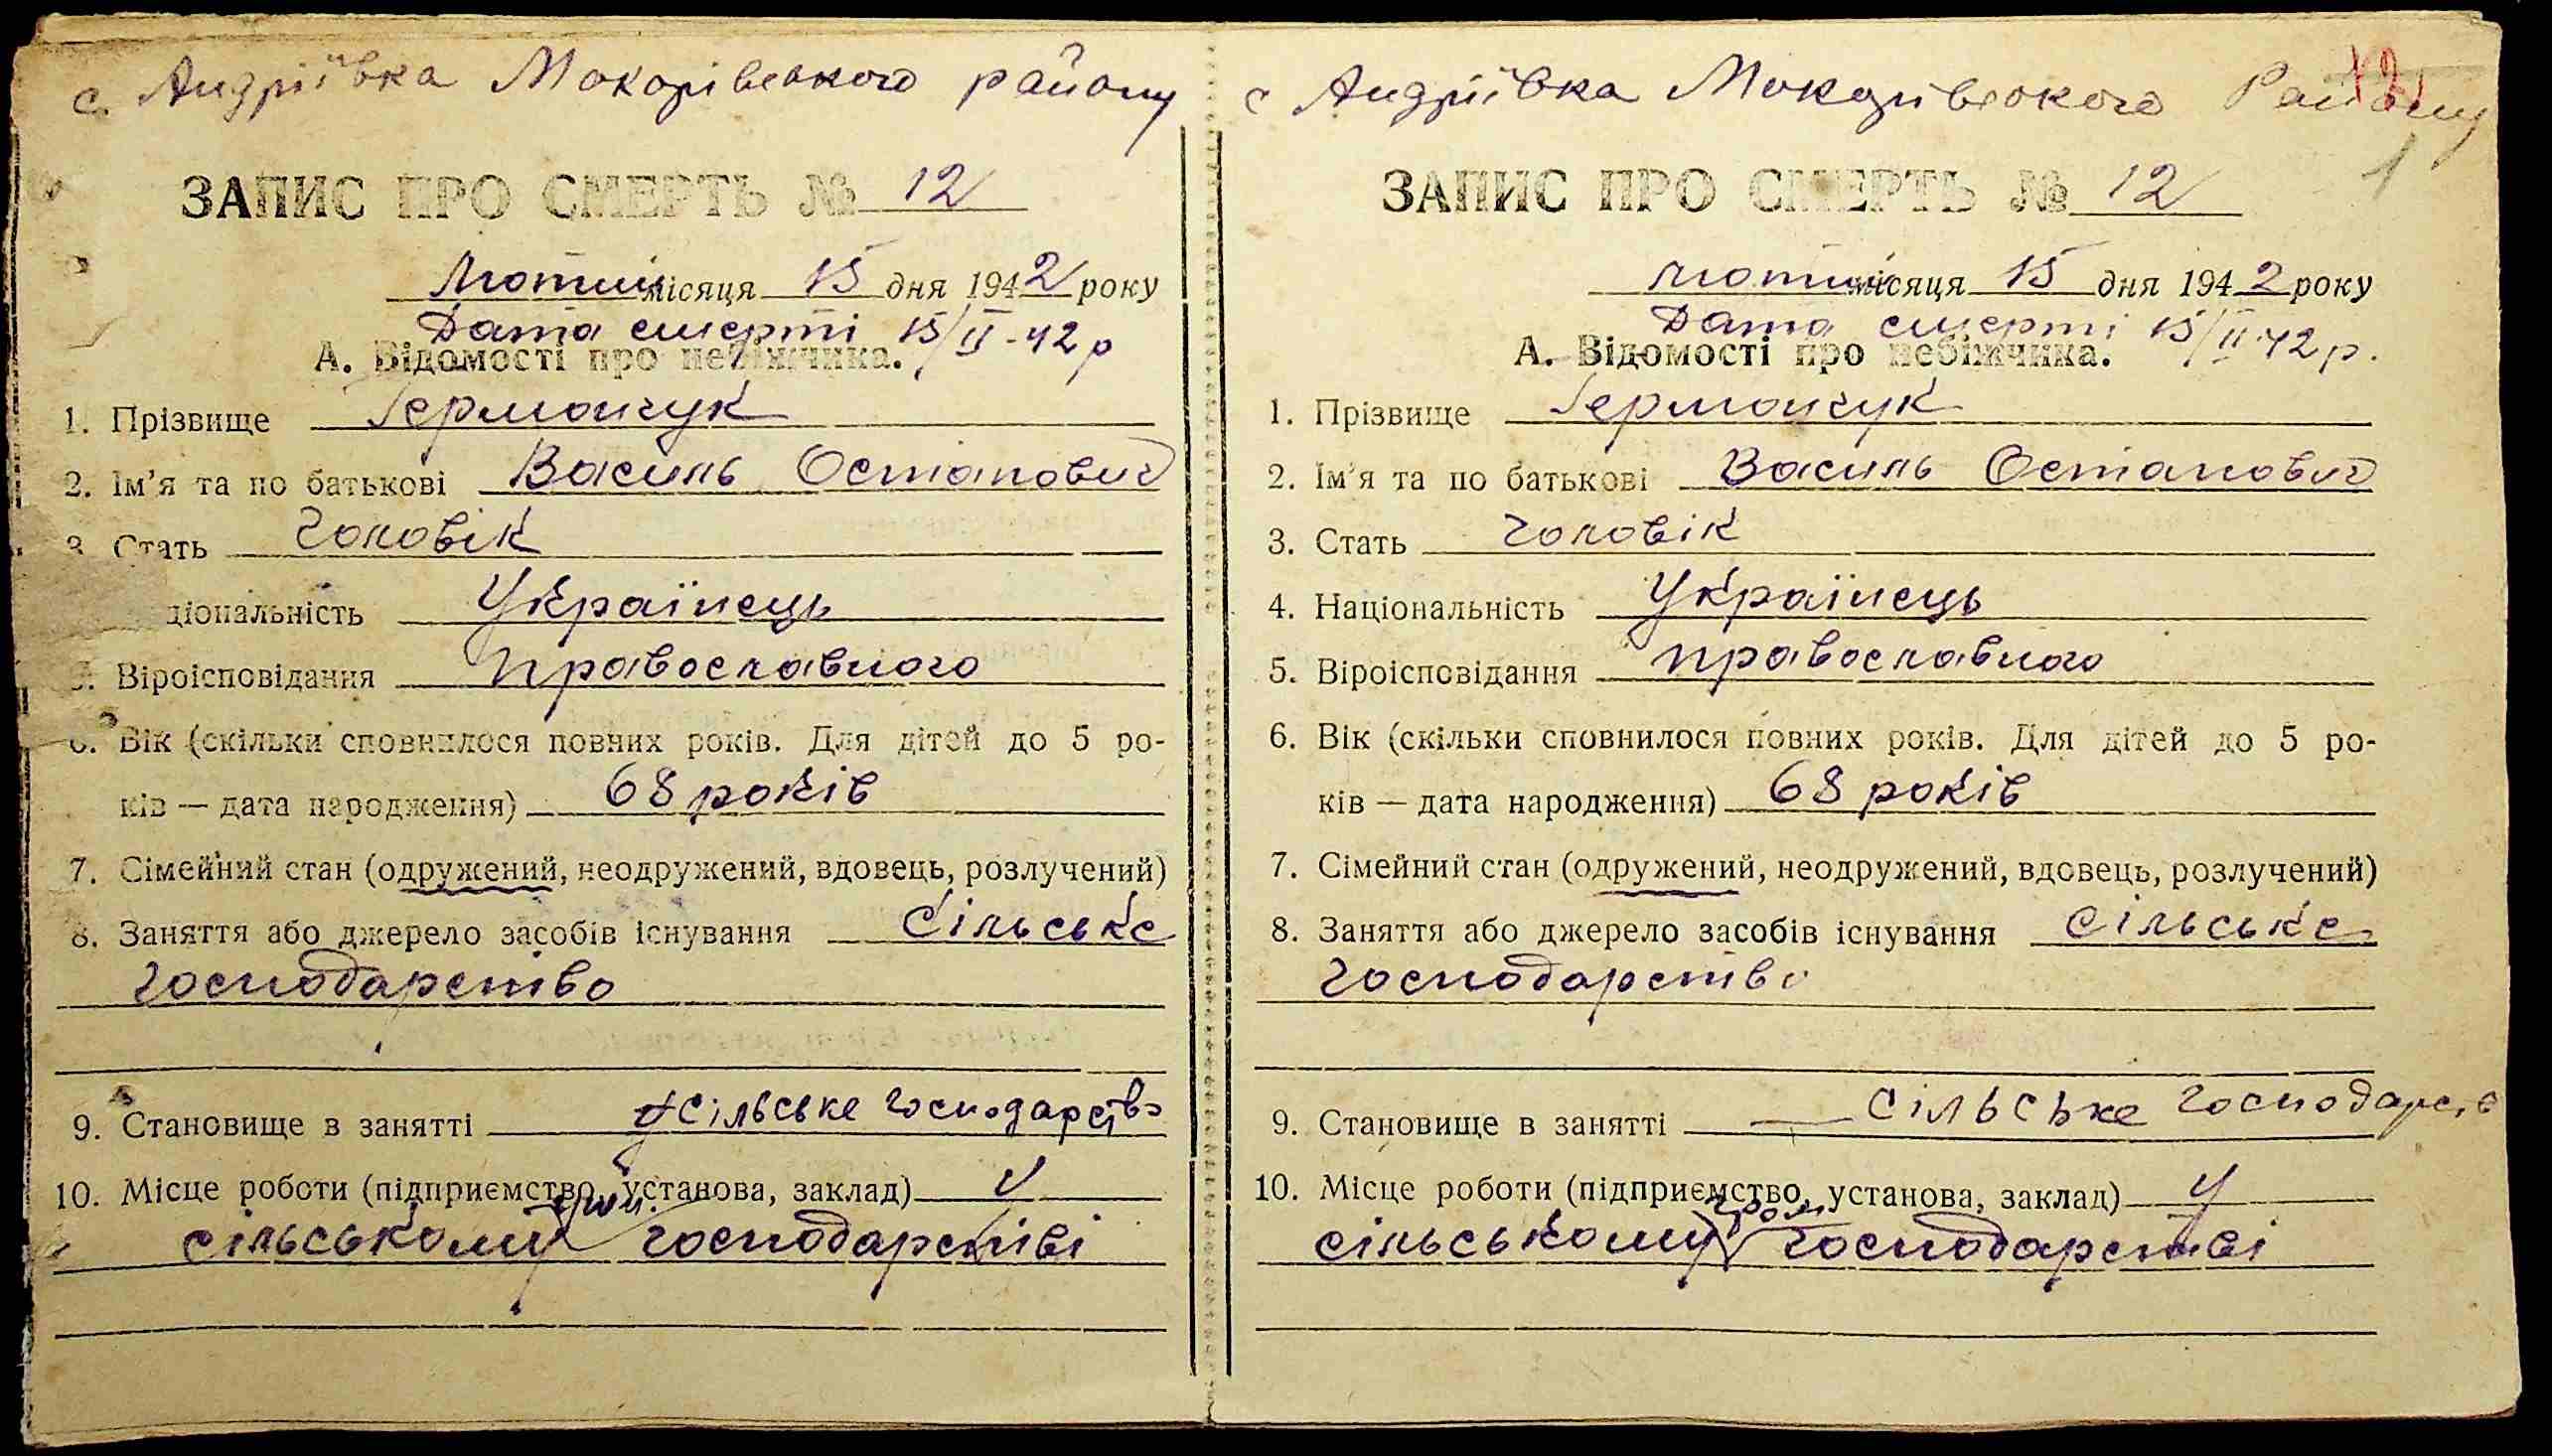 с. Андріївка Макарівського району
ЗАПИС ПРО СМЕРТЬ № 12
місяця 15 дня 1942 року
Дата смерті 15/II-42 р
А. Відомості про небіжчика.
1. Прізвище Германчук
2. Ім'я та по батькові Василь Остапович
3. Стать чоловік
ціональність Українець
5. Віроісповідання православного
6. Вік (скільки сповнилося повних років. Для дітей до 5 ро-
ків — дата народження) 68 років
7. Сімейний стан (одружений, неодружений, вдовець, розлучений)
8. Заняття або джерело засобів існування Сільське
господарство
9. Становище в занятті сільське господарство
10. Місце роботи (підприємство, установа, заклад) у
гром.
сільському господарстві
с Андріївка Макарівського Району
1
ЗАПИС ПРО СМЕРТЬ № 12
місяця 15 дня 1942 року
Дата смерті 15/II-42 р.
А. Відомості про небіжчика.
1. Прізвище Германчук
2. Ім'я та по батькові Василь Остапович
3. Стать чоловік
4. Національність Українець
5. Віроісповідання православного
6. Вік (скільки сповнилося повних років. Для дітей до 5 ро-
ків — дата народження) 68 років
7. Сімейний стан (одружений, неодружений, вдовець, розлучений)
8. Заняття або джерело засобів існування Сільське
господарство
9. Становище в занятті Сільське господарств
10. Місце роботи (підприємство, установа, заклад) у
гром
сільському господарстві